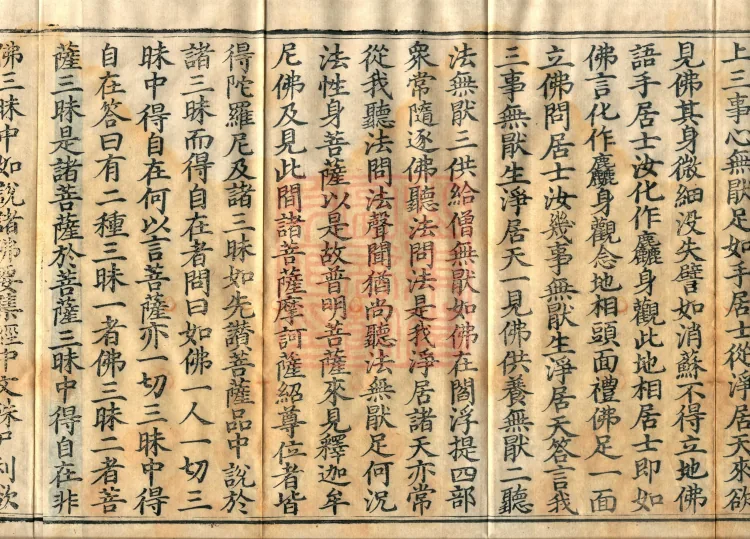 上三事心無猒足如手居士從淨居天來欲
見佛其身微細没失譬如消蘇不得立地佛
語手居士汝化作麤身觀此地相居士即如
佛言化作麤身觀念地相頭面禮佛足一面
立佛問居士汝幾事無猒生淨居天荅言我
三事無猒生淨居天一見佛供養無猒二聽
法無猒三供給僧無猒如佛在閻浮提四部
衆常隨逐佛聽法問法是我淨居諸天亦常
從我聽法問法聲聞猶尚聽法無猒足何況
法性身菩薩以是故普明菩薩來見釋迦牟
尼佛及見此間諸菩薩摩訶薩紹尊位者皆
得陀羅尼及諸三昧如先讃菩薩品中說於
諸三昧而得自在者問曰如佛一人一切三
昧中得自在何以言菩薩亦一切三昧中得
自在荅曰有二種三昧一者佛三昧二者菩
薩三昧是諸菩薩於菩薩三昧中得自在非
佛三昧中如說諸佛要集經中文殊尸利欲